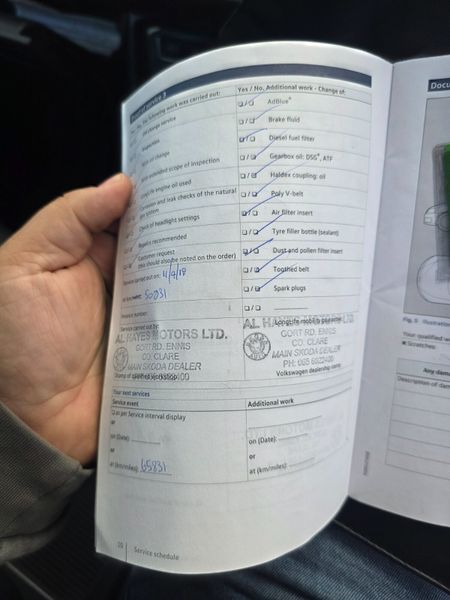 Yes / No, the following work was carried out:
Oil change service
Inspection
with oil change
with extended scope of inspection
LongLife engine oil used
Corrosion and leak checks of the natural
gas system
Check of headlight settings
Repairs recommended
Customer request
(this should also be noted on the order)
Service carried out on: 4/9/18
at km/miles: 50831
Service carried out by:
AL HAYES MOTORS LTD.
GORT RD. ENNIS
CO. CLARE
MAIN SKODA DEALER
Yes / No, Additional work - Change of:
AdBlue®
Brake fluid
Diesel fuel filter
Gearbox oil: DSG®, ATF
Haldex coupling: oil
Poly V-belt
Air filter insert
Tyre filler bottle (sealant)
Dust and pollen filter insert
Toothed belt
Spark plugs
LongLife mobility guarantee
AL HAYES MOTORS LTD
GORT RD. ENNIS
CO. CLARE
MAIN SKODA DEALER
Volkswagen dealership stamp
Your next services
Service event
as per Service interval display
or
on (Date):
or
at (km/miles): 65831
Additional work
on (Date):
or
at (km/miles):
20 Service schedule
Docu
Your qualified w
Scratches
Any dama
Description of dam